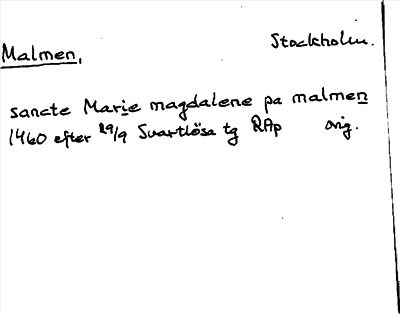 Malmen, Stockholm.
sancte Marie magdalene pa malmen
1460 efter 29/9 Svartlösa tg RAp orig.